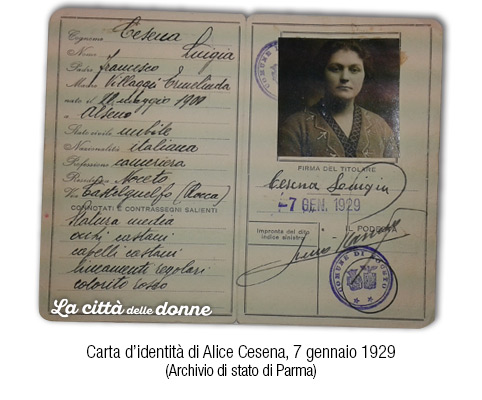 Cognome Cesena
Nome Luigia
Padre Francesco
Madre Villaggi Ermelinda
nato il maggio
a Alseno
Stato civile nubile
Nazionalità italiana
Professione cameriera
Residenza Noceto
Via Castelguelfo (Rocca)
CONNOTATI E CONTRASSEGNI SALIENTI
Statura media
occhi castani
capelli castani
lineamenti regolari
colorito roseo
La città delle donne
FIRMA DEL TITOLARE
Cesena Luigia
-7 GEN. 1929
Impronta del dito
indice sinistro
IL PODESTÀ
COMUNE DI NOCETO
Carta d'identità di Alice Cesena, 7 gennaio 1929
(Archivio di stato di Parma)